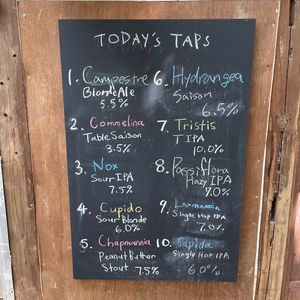 TODAY'S TAPS
1. Campestre
Blonde Ale
5.5%
2. Commelina
Table Saison
3.5%
3. Nox
Sour IPA
7.5%
4. Cupido
Sour Blonde
6.0%
5. Chapmannia
Peanut Butter
Stout 7.5%
6. Hydrangea
Saison
6.5%
7. Tristis
TIPA
10.0%
8. Passiflora
Hazy IPA
7.0%
9.
Single Hop IPA
7.0%
10. Sapida
Single Hop IPA
6.0%